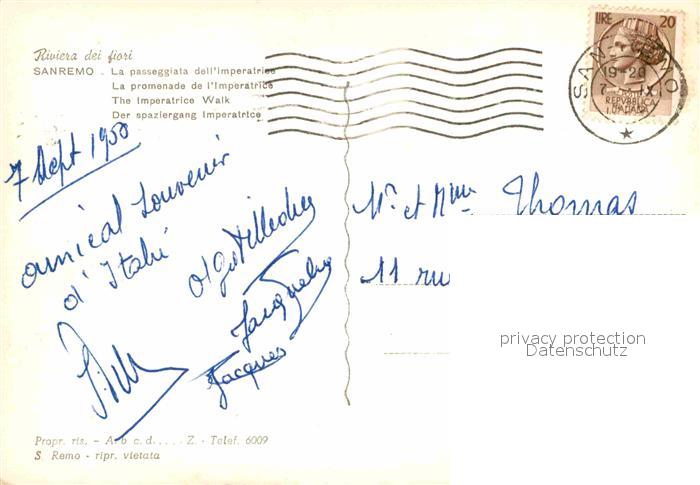 Riviera dei fiori
SANREMO - La passeggiata dell'Imperatrice
La promenade de l'Imperatrice
The Imperatrice Walk
Der spaziergang Imperatrice
LIRE 20
19-20
REPVBBLICA
ITALIANA
7 Sept 1958
amical souvenir
d'Italie
Jacqueline
Jacques
Mr. et Mme Thomas
11 ru
privacy protection
Datenschutz
Propr. ris. - A
Z. - Telef. 6009
S. Remo - ripr. vietata